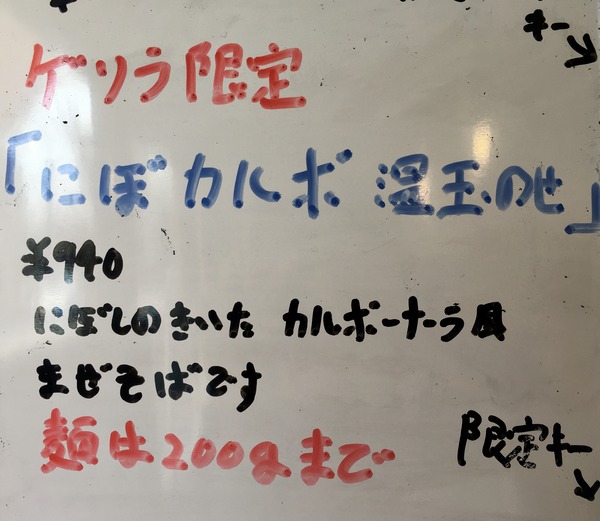 キー
ゲソラ限定
「にぼカルボ 温玉のせ」
¥940
にぼしのきいた カルボーナーラ風
まぜそばです
麺は200gまで
限定キー